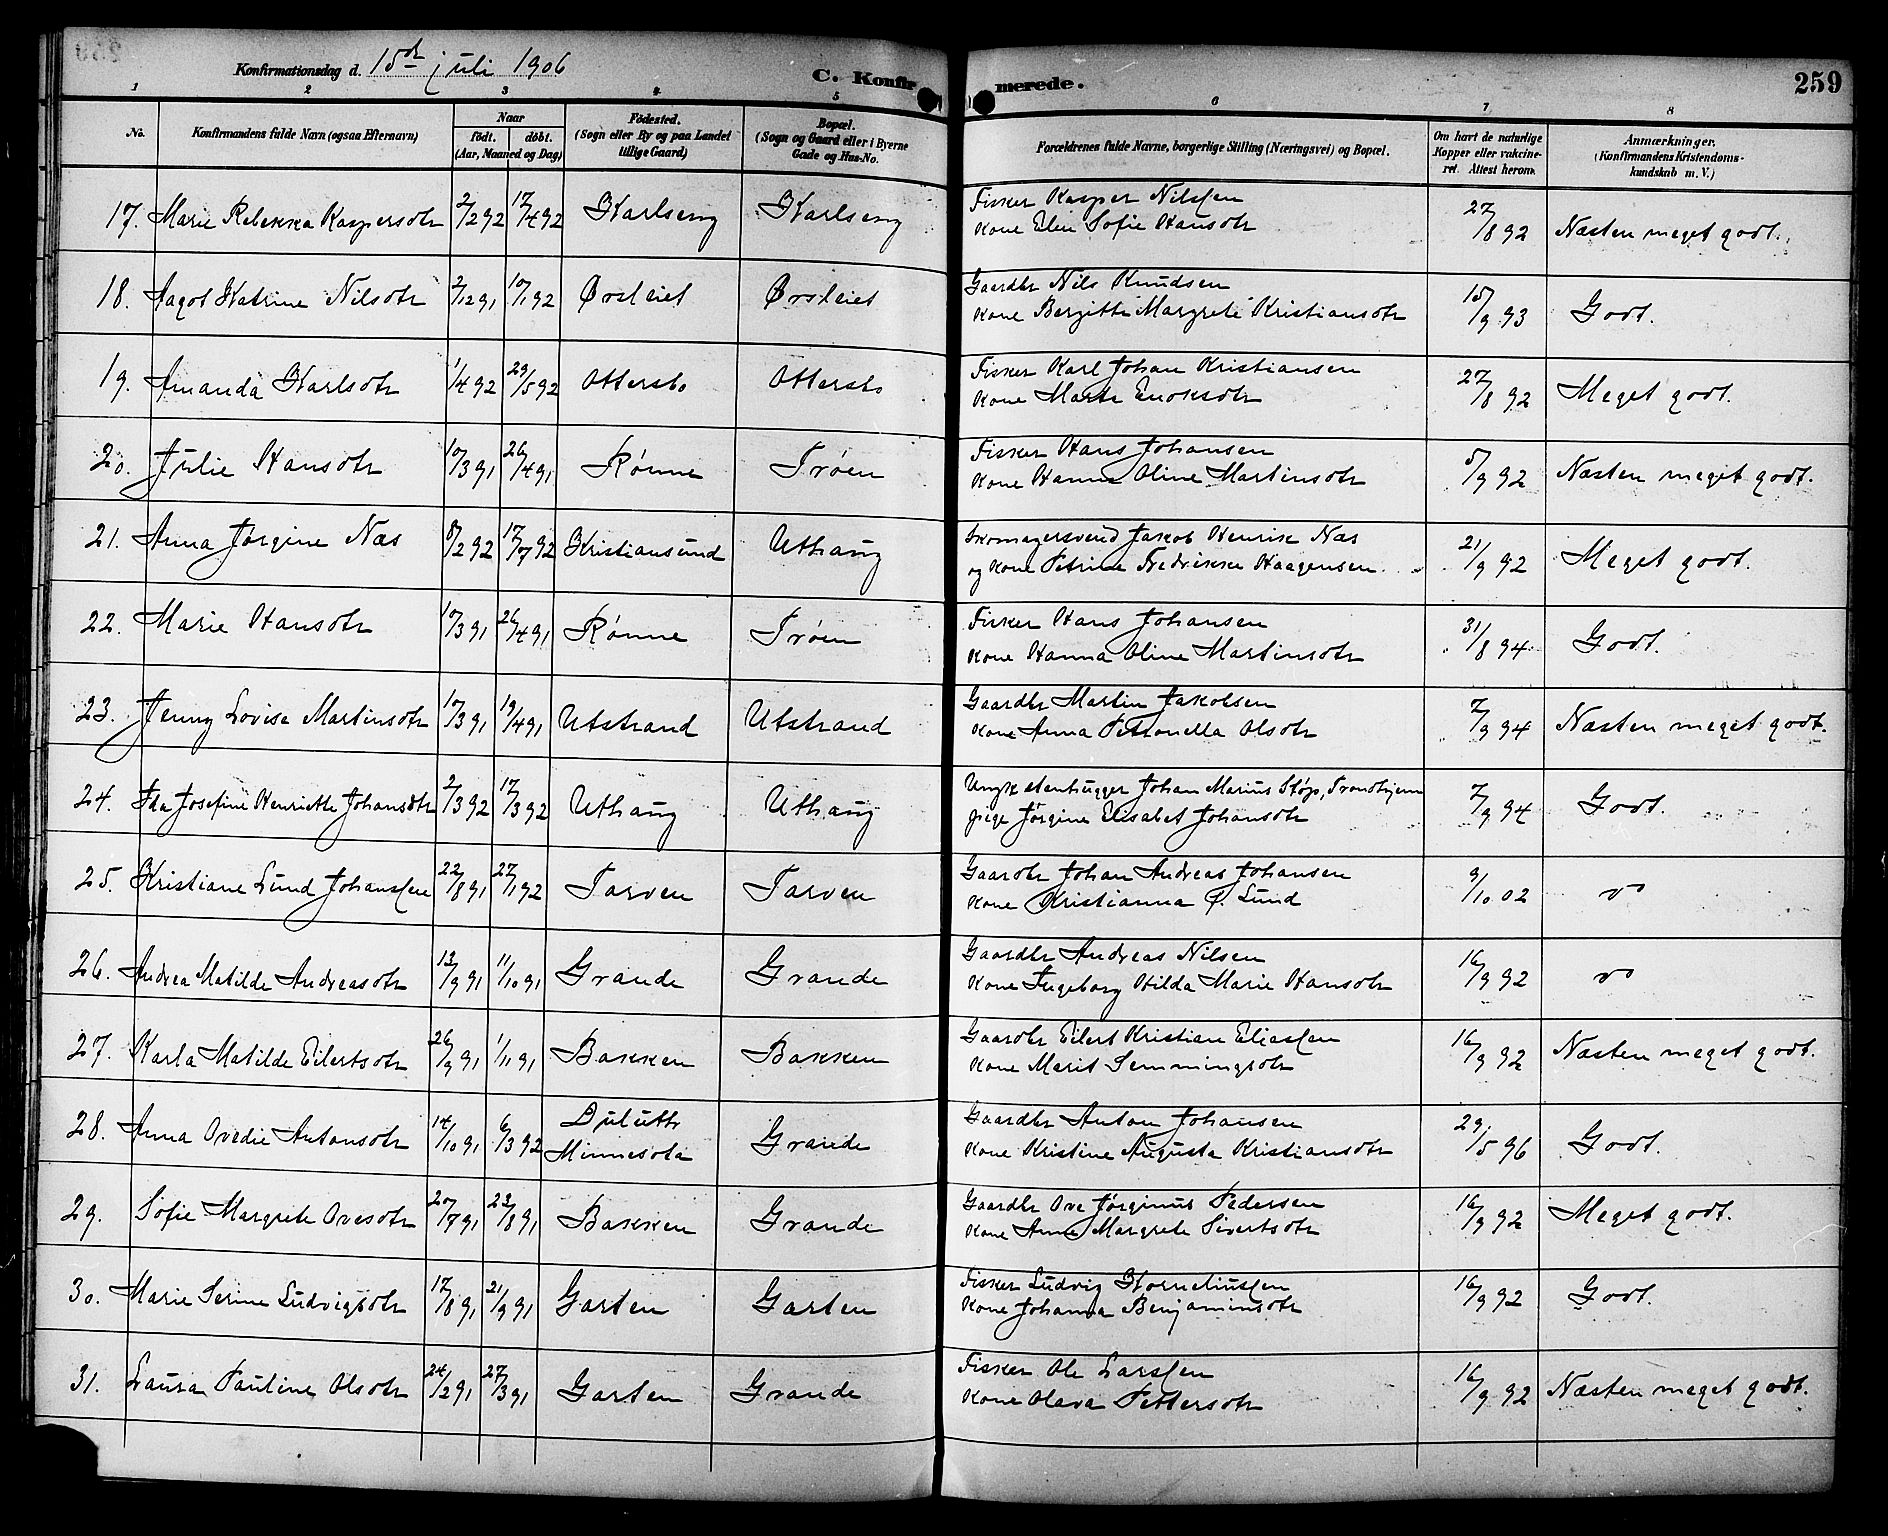 Konfirmationsdag d. 15de juli 1906
C. Konfirmerede.
259
1 2 3 4 5 6 7 8
No.
Konfirmandens fulde Navn (ogsaa Efternavn)
Naar
født. døbt.
(Aar, Maaned og Dag)
Fødested.
(Sogn eller By og paa Landet
tillige Gaard)
Bopæl.
(Sogn og Gaard eller i Byerne
Gade og Hus-No.
Forældrenes fulde Navne, borgerlige Stilling (Næringsvei) og Bopæl.
Om havt de naturlige
Kopper eller vakcine-
ret. Attest herom.
Anmærkninger.
(Konfirmandens Kristendoms-
kundskab m. V.)
17. Marie Rebekka Kaspersdtr 2/2 92 17/4 92 Karlseng Karlseng
Fisker Kasper Nilssen
Kone Elen Sofie Hansdtr
27/8 92 Næsten meget godt.
18. Aagot Katrine Nilsdtr 2/12 91 10/1 92 Ørsleiet Ørsleiet
Gaardbr Nils Knudsen
Kone Bergitte Margrete Kristiansdtr
15/9 93 Godt.
19. Amanda Karlsdtr 1/4 92 29/5 92 Ottersbo Ottersbo
Fisker Karl Johan Kristiansen
Kone Marte Enoksdtr
27/8 92 Meget godt.
20. Julie Hansdtr 10/3 91 26/4 91 Rønne Trøen
Fisker Hans Johansen
Kone Hanna Oline Martinsdtr
5/9 92 Næsten meget godt.
21. Anna Jørgine Næs 8/2 92 17/7 92 Kristiansund Uthaug
Skomagersvend Jakob Henrik Næs
og Kone Petrine Fredrikke Haagensen
21/9 92 Meget godt.
22. Marie Hansdtr 10/3 91 26/4 91 Rønne Trøen
Fisker Hans Johansen
Kone Hanna Oline Martinsdtr
31/8 94 Godt.
23. Jenny Lovise Martinsdtr 10/3 91 19/4 91 Utstrand Utstrand
Gaardbr Martin Jakobsen
Kone Anna Petronella Olsdtr
7/9 94 Næsten meget godt.
24. Ida Josefine Henriette Johansdtr 2/3 92 17/3 92 Uthaug Uthaug
Ungk stenhugger Johan Marius Støp, Trondhjem
pige Jørgine Elisabet Johansdtr
7/9 94 Godt.
25. Kristiane Lund Johanssen 22/8 91 27/1 92 Tarven Tarven
Gaardbr Johan Andreas Johansen
Kone Kristianna P. Lund
9/10 02
26. Andrea Matilde Andreasdtr 13/9 91 11/10 91 Grande Grande
Gaardbr Andreas Nilsen
Kone Ingeborg Hilda Marie Hansdtr
16/9 92
27. Karla Matilde Eilertsdtr 26/9 91 1/11 91 Bakken Bakken
Gaardbr Eilert Kristian Eliassen
Kone Marit Semmingsdtr
16/9 92 Næsten meget godt.
28. Anna Ovedie Antonsdtr 14/10 91 6/3 92 Duluth
Minnesota Grande
Gaardbr Anton Johansen
Kone Kristine Augusta Kristiansdtr
29/5 96 Godt.
29. Sofie Margrete Ovesdtr 20/7 91 23/8 91 Bakken Grande
Gaardbr Ove Jørginus Pedersen
Kone Anne Margrete Sivertsdtr
16/9 92 Meget godt.
30. Marie Serine Ludvigsdtr 17/8 91 21/9 91 Garten Garten
Fisker Ludvig Korneliussen
Kone Johanna Benjaminsdtr
16/9 92 Godt.
31. Laura Pauline Olsdtr 24/2 91 27/3 91 Garten Grande
Fisker Ole Larssen
Kone Olava Pettersdtr
16/9 92 Næsten meget godt.